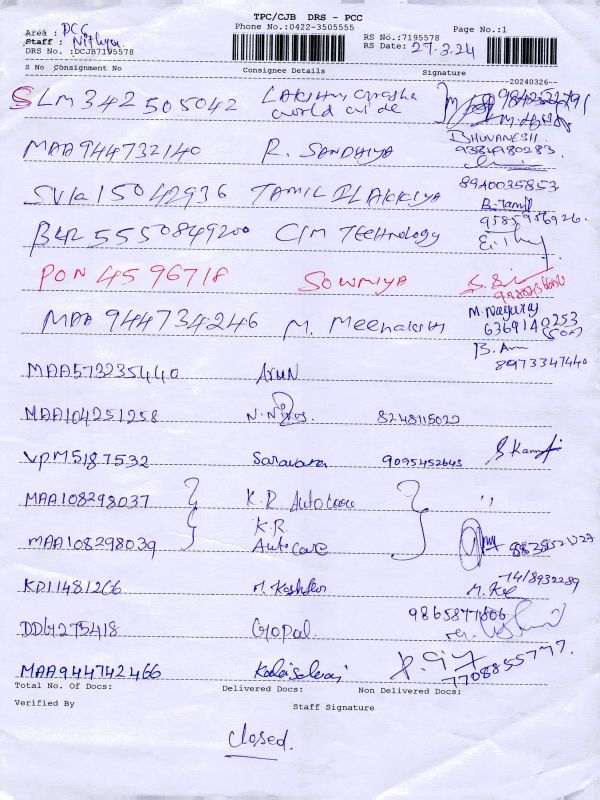 TPC/CJB DRS - PCC
Phone No.:0422-3505555
Area : PCC
Staff : Nithya
DRS No. :DCJB7195578
RS No.:7195578
RS Date: 27.3.24
Page No.:1
S No Consignment No Consignee Details Signature
--20240326--
SLM342505042 world wide
MAA944732140 R. SANDHIYA BHUVANESH
9384980283
SVK15042936 TAMIL ILAKKIYA 8940035853
B.Tamil
BLR5550849200 CIM Technology
PON 4596718 SOWMIYA
MAA 944734246 M. Meenakshi M. Nagaraj
6369140253
(son)
MAA573235440 Arun 8973347440
MAA104251258 8248115022
VPM5187532 Saravana 9095452645
MAA108298037 K.R Autocare
MAA108298039 K.R Autocare
KDI1481266
DDG275418 Gopal 9865877806
MAA944742466 Kalaiselvi 7708855777.
Total No. Of Docs: Delivered Docs: Non Delivered Docs:
Verified By Staff Signature
closed.